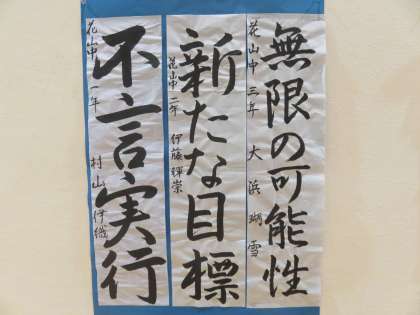 無限の可能性
花山中 三年 大浜 瑚雪
新たな目標
花山中 二年 伊藤 輝崇
不言実行
花山中 一年 村山 伊織